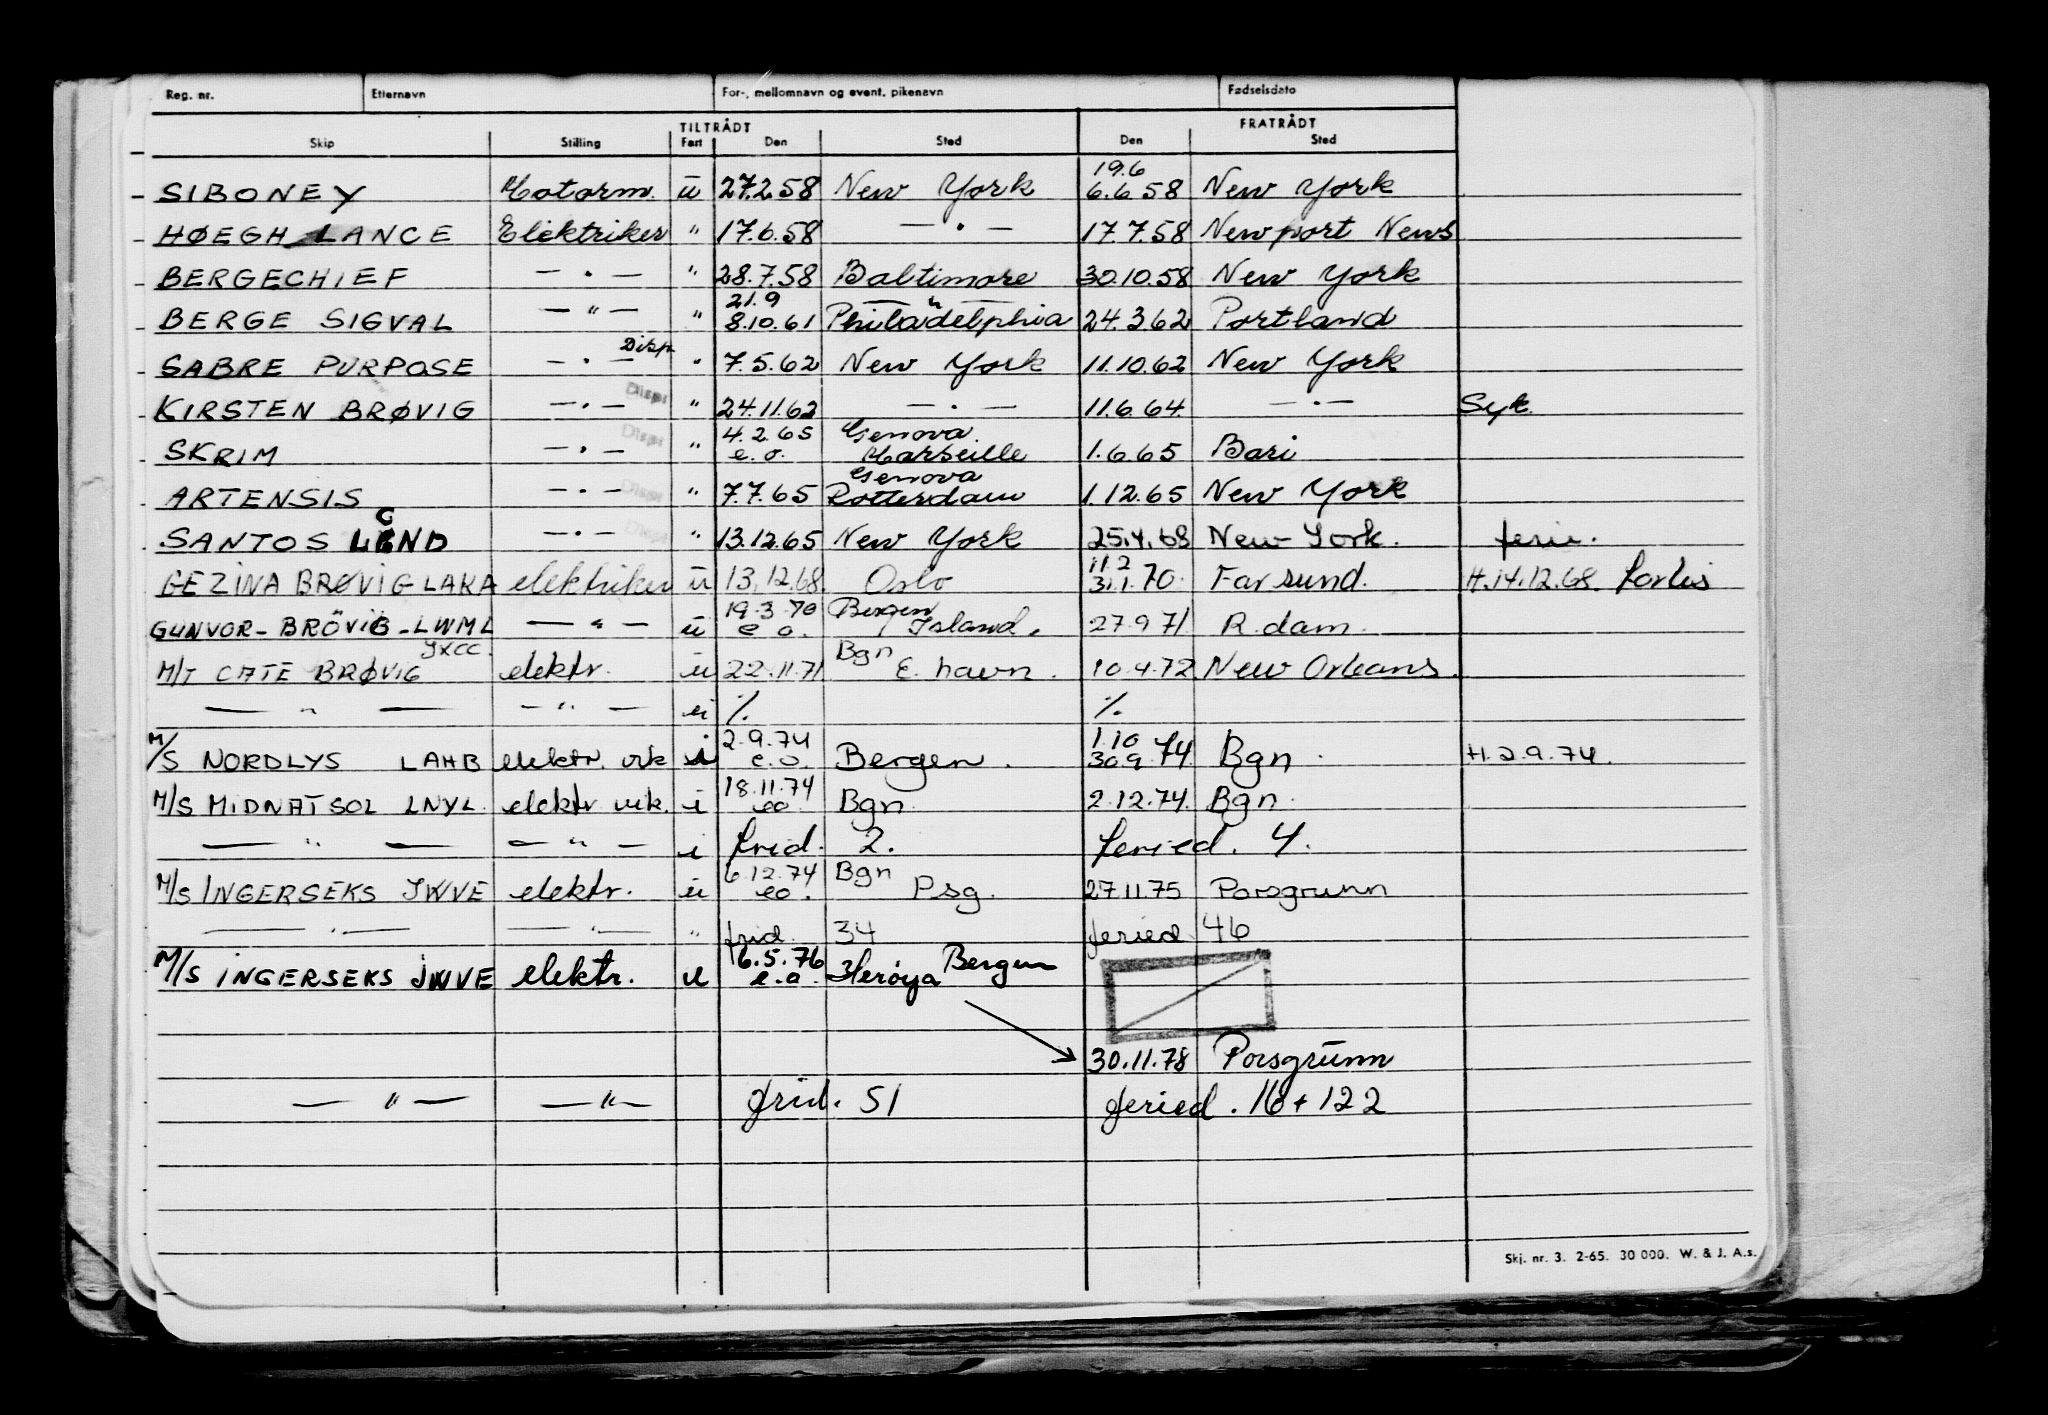 Reg. nr. Etternavn For-, mellomnavn og event. pikenavn Fødselsdato
TILTRÅDT FRATRÅDT
Skip Stilling Fart Den Sted Den Sted
19.6
SIBONEY Motorm. u 27.2.58 New York 6.6.58 New York
HØEGH LANCE Elektriker " 17.6.58 — . — 17.7.58 Newport News
BERGECHIEF — . — " 28.7.58 Baltimore 30.10.58 New York
21.9 — " —
BERGE SIGVAL — " — " 8.10.61 Philadelphia 24.3.62 Portland
Disp
SABRE PURPOSE — . — " 7.5.62 New York 11.10.62 New York
Disp
KIRSTEN BRØVIG — . — " 24.11.62 — . — 11.6.64. — . — Syk.
Disp 4.2.65 Genova.
SKRIM — . — " e.o. Marseille 1.6.65 Bari
Genova
ARTENSIS — . — Disp " 7.7.65 Rotterdam 1.12.65 New York
SANTOS — . — Disp " 13.12.65 New York 25.4.68 New York. ferie.
11.2
GEZINA BRØVIG LAKA elektriker u 13.12.68. Oslo 31.1.70. Farsund. H.14.12.68.
19.3.70 Bergen
GUNVOR - BRÖVIG - LWML — " — u e.o. Island. 27.9.71 R.dam.
JXCC. Bgn
M/T CATE BRØVIG elektr. u 22.11.71 E. havn. 10.4.72 New Orleans.
— " — — " — ei %. %.
2.9.74 1.10
M/S NORDLYS LAHB elektr. vik i e.o. Bergen. 30.9.74 Bgn. H. 2.9.74.
18.11.74
M/S MIDNATSOL LNYL. elektr vik. i eo. Bgn. 2.12.74. Bgn.
— " — — " — i frid. 2. feried. 4.
6.12.74 Bgn
M/S INGERSEKS JWVE elektr. u eo. Psg. 27.11.75 Porsgrunn
— " — — " — " frid. 34 feried 46
6.5.76 Bergen
M/S INGERSEKS JWVE elektr. u e.o. Herøya
30.11.78 Porsgrunn
— " — — " — frid. 51 feried. 16 + 122
Skj. nr. 3. 2-65. 30 000. W. & J. A.s.